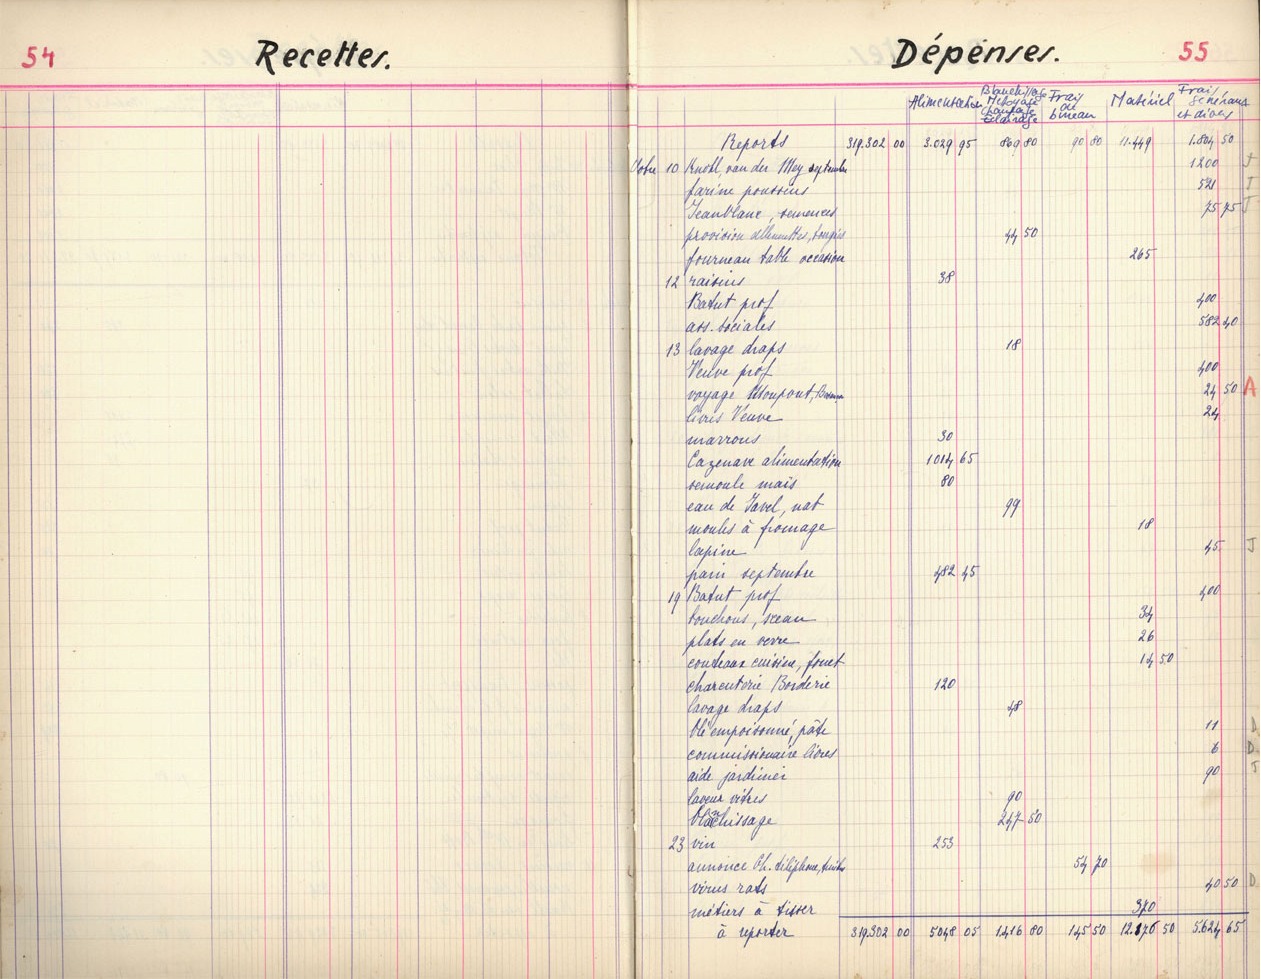 54 Recettes.
Dépenses. 55
Alimentation Blanchissage Nettoyage Chauffage Eclairage Frais de bureau Matériel Frais généraux et divers
Reports 319.302 00 3.029 95 869 80 90 80 11.449 1.804 50
10 Knobl, van der Mey septembre 1200 J
farine poussins 521 J
Jeanblanc, semences 75 75 J
provision allumettes, bougies 44 50
fourneau table occasion 265
12 raisins 38
Batut prof 400
ass. sociales 582 40
13 lavage draps 18
Veuve prof 400
voyage 24 50 A
livres Veuve 24
marrons 30
Cazenave alimentation 1014 65
semoule maïs 80
eau de Javel, nat 99
moules à fromage 18
lapine 45 J
pain septembre 482 45
19 Batut prof 400
bouchons, sceau 34
plats en verre 26
couteaux cuisine, fouet 14 50
charcuterie Borderie 120
lavage draps 48
blé empoisonné, pâte 11 D
commissionnaire livres 6 D
aide jardinier 90 J
laveur vitres 90
blanchissage 247 50
23 vin 253
annonce Ch. téléphone, timbres 54 70
virus rats 40 50 D
métiers à tisser 370
à reporter 319.302 00 5048 05 1416 80 145 50 12.176 50 5.624 65